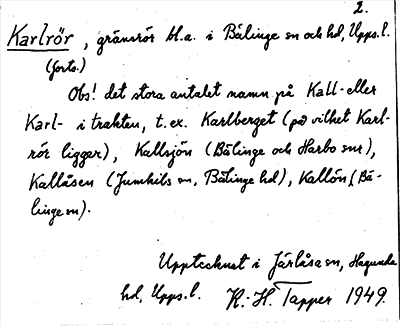 2.
Karlrör, gränsrör bl.a. i Bälinge sn och hd, Upps. l.
(forts.)
Obs! det stora antalet namn på Kall- eller
Karl- i trakten, t.ex. Karlberget (på vilket Karl-
rör ligger), Kallsjön (Bälinge och Harbo snr),
Kallåsen (Jumkils sn, Bälinge hd), Kallön (Bä-
linge sn).
Upptecknat i Järlåsa sn, Hagunda
hd, Upps. l. K.-H. Tapper 1949.